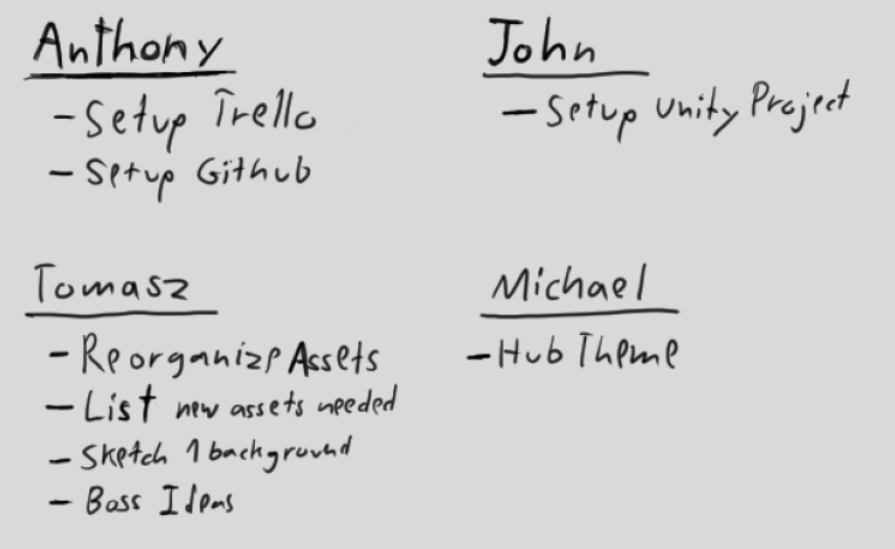 Anthony
- Setup Trello
- Setup Github
John
- Setup Unity Project
Tomasz
- Reorganize Assets
- List new assets needed
- Sketch 1 background
- Boss Ideas
Michael
- Hub Theme